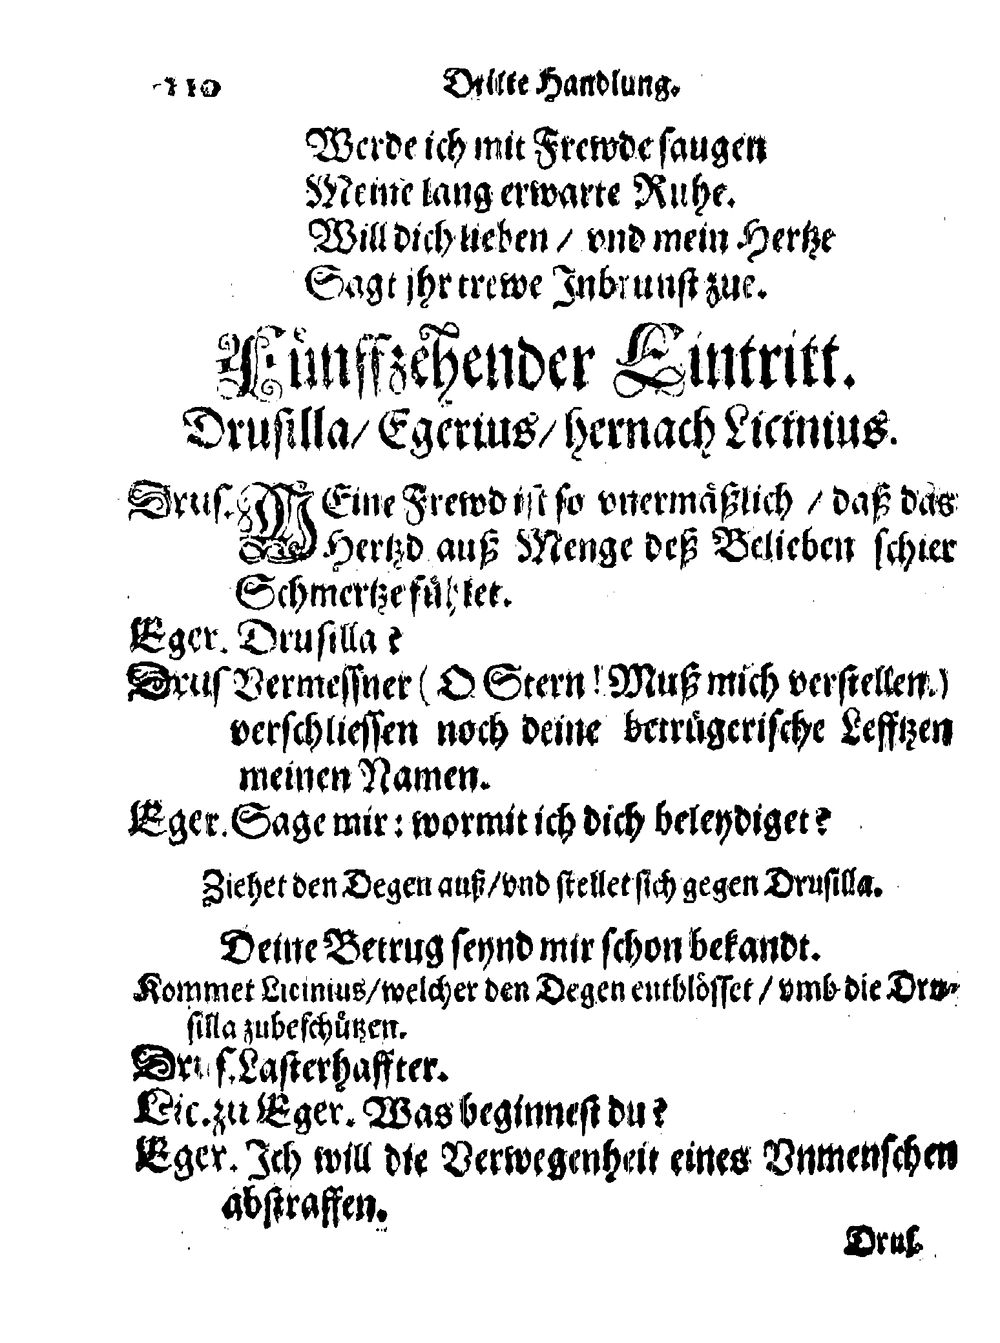 110 Dritte Handlung.
Werde ich mit Frewde saugen
Meine lang erwarte Ruhe.
Will dich lieben / vnd mein Hertze
Sagt jhr trewe Inbrunst zue.
Fünffzehender Eintritt.
Drusilla/ Egerius/ hernach Licinius.
Drus. MEine Frewd ist so vnermäßlich / daß das
Hertzd auß Menge deß Belieben schier
Schmertze fühlet.
Eger. Drusilla?
Drus Vermessner ( O Stern! Muß mich verstellen.)
verschliessen noch deine betrügerische Lefftzen
meinen Namen.
Eger. Sage mir: wormit ich dich beleydiget?
Ziehet den Degen auß/vnd stellet sich gegen Drusilla.
Deine Betrug seynd mir schon bekandt.
Kommet Licinius/welcher den Degen entblösset / vmb die Dru-
silla zubeschützen.
Drus. Lasterhaffter.
Lic. zu Eger. Was beginnest du?
Eger. Ich will die Verwegenheit eines Vnmenschen
abstraffen.
Drus.